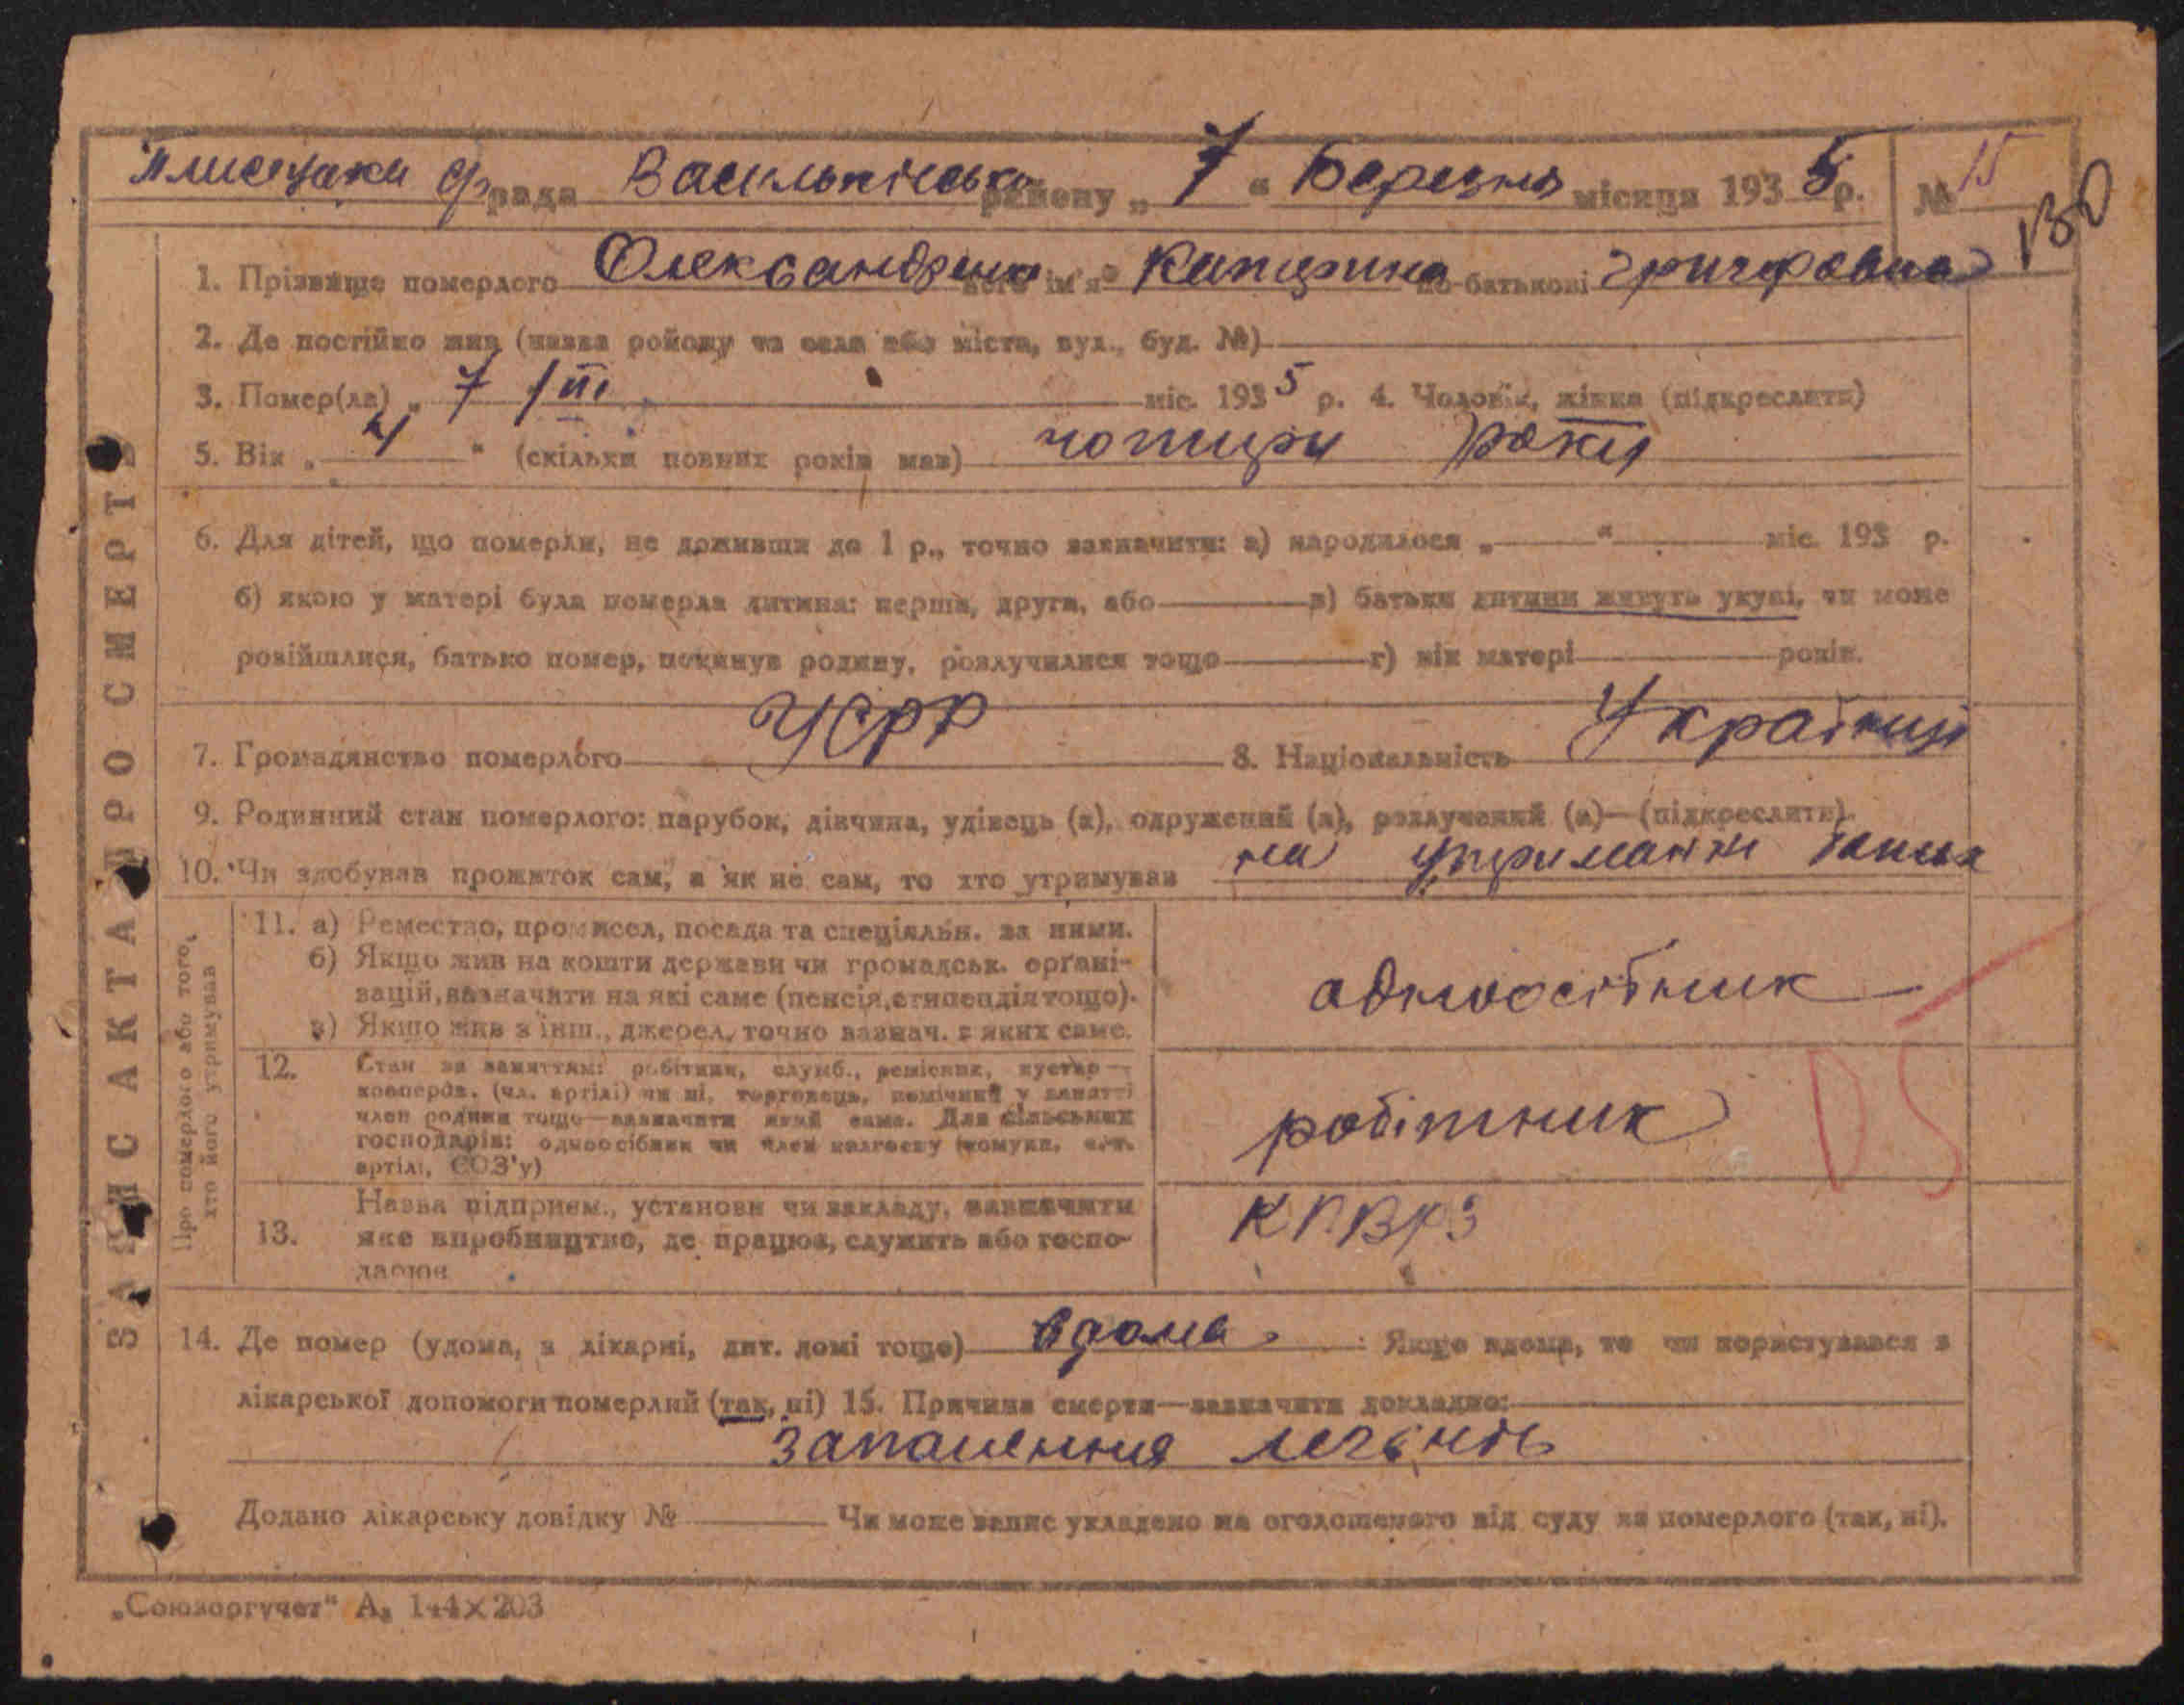 Плисецька с/рада Васильківсько району „ 7 “ Березня місяця 1935 р. № 15
130
1. Прізвище померлого Олександренко його ім'я Катирина по-батькові Григоровна
2. Де постійно жив (назва району та села або міста, вул., буд. №)
3. Помер(ла) „ 7 /III міс. 1935 р. 4. Чоловік, жінка (підкреслити)
5. Вік „ 4 “ (скільки повних років мав) чотири роки
6. Для дітей, що померли, не доживши до 1 р., точно зазначити: а) народилося „ “ міс. 193 р.
б) якою у матері була померла дитина: перша, друга, або в) батьки дитини живуть укупі, чи може
розійшлися, батько помер, покинув родину, розлучилися тощо г) вік матері років.
7. Громадянство померлого УСРР 8. Національність Україниці
9. Родинний стан померлого: парубок, дівчина, удівець (а), одружений (а), розлучений (а)—(підкреслити).
10. Чи здобував прожиток сам, а як не сам, то хто утримував на утриманні
ЗАПИС АКТА ПРО СМЕРТЬ
Про померлого або того, хто його утримував
11. а) Ремество, промисел, посада та спеціяльн. за ними.
б) Якщо жив на кошти держави чи громадськ. орґані-
зацій, зазначити на які саме (пенсія, стипендія тощо).
в) Якщо жив з інш., джерел, точно зазнач. з яких саме.
одноосібник
12. Стан за заняттям: робітник, служб., ремісник, кустар—
кооперов. (чл. артілі) чи ні, торговець, помічний у занятті
член родини тощо—зазначити який саме. Для сільських
господарів: одноосібник чи член колгоспу (комуни, с.-г.
артілі, СОЗ'у)
робітник
DS
13. Назва підприєм., установи чи закладу, зазначити
яке виробництво, де працює, служить або госпо-
дарює
КПВРЗ
14. Де помер (удома, в лікарні, дит. домі тощо) вдома Якщо вдома, то чи користувався з
лікарської допомоги померлий (так, ні) 15. Причина смерти—зазначити докладно:
Запалення легень
Додано лікарську довідку № Чи може запис укладено на оголошеного від суду як померлого (так, ні).
„Союзоргучет“ А₅ 144×203